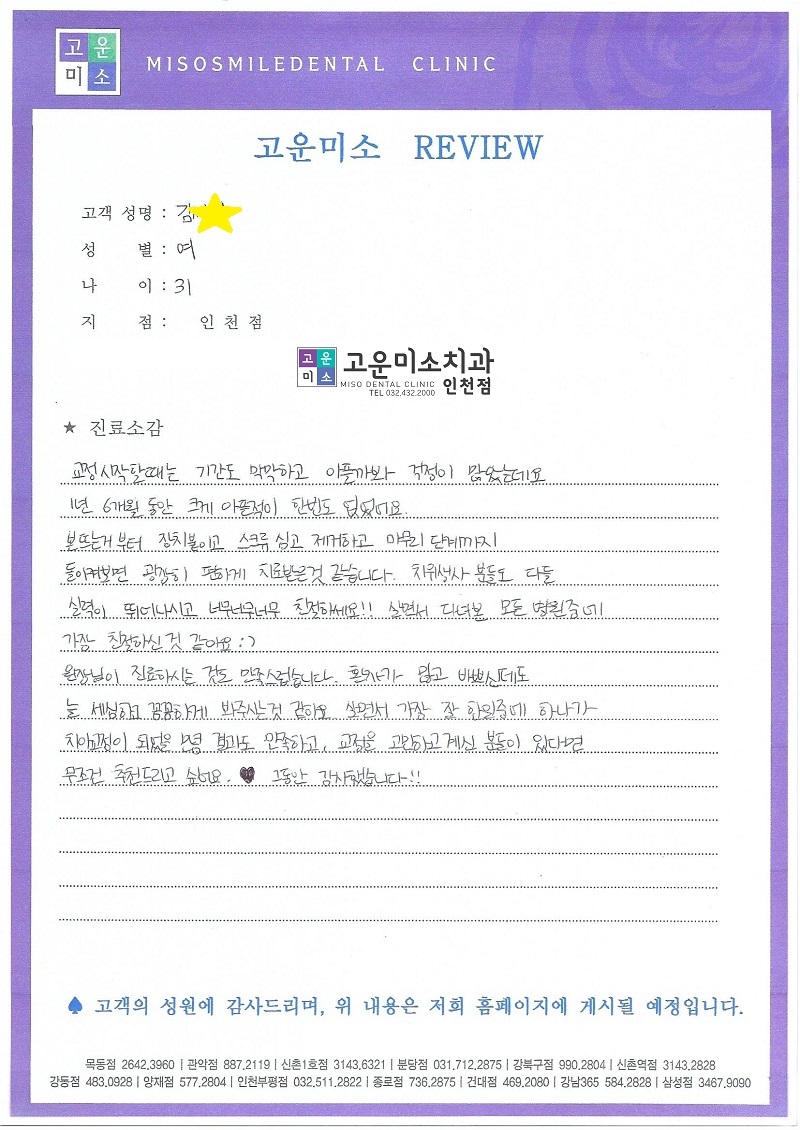 고운
미소
MISOSMILEDENTAL CLINIC
고운미소 REVIEW
고객 성명 : 김
성 별 : 여
나 이 : 31
지 점 : 인 천 점
고운
미소
고운미소치과
MISO DENTAL CLINIC 인천점
TEL 032.432.2000
★ 진료소감
교정시작할때는 기간도 막막하고 아플까봐 걱정이 많았는데요
1년 6개월 동안 크게 아픈적이 한번도 없었어요.
본뜨는거부터 장치붙이고 스크류 심고 제거하고 마무리 단계까지
돌이켜보면 굉장히 편하게 치료받은것 같습니다. 치위생사 분들도 다들
실력이 뛰어나시고 너무너무너무 친절하세요!! 살면서 다녀본 모든 병원중에
가장 친절하신 것 같아요 :)
원장님이 진료하시는 것도 만족스럽습니다. 환자가 많고 바쁘신데도
늘 세심하고 꼼꼼하게 봐주시는것 같아요 살면서 가장 잘 한일중에 하나가
치아교정이 되었을 만큼 결과도 만족하고, 교정을 고민하고계신 분들이 있다면
무조건 추천드리고 싶어요. ♥ 그동안 감사했습니다!!
♠ 고객의 성원에 감사드리며, 위 내용은 저희 홈페이지에 게시될 예정입니다.
목동점 2642,3960 | 관악점 887,2119 | 신촌1호점 3143,6321 | 분당점 031,712,2875 | 강북구점 990,2804 | 신촌역점 3143,2828
강동점 483,0928 | 양재점 577,2804 | 인천부평점 032,511,2822 | 종로점 736,2875 | 건대점 469,2080 | 강남365 584,2828 | 삼성점 3467,9090